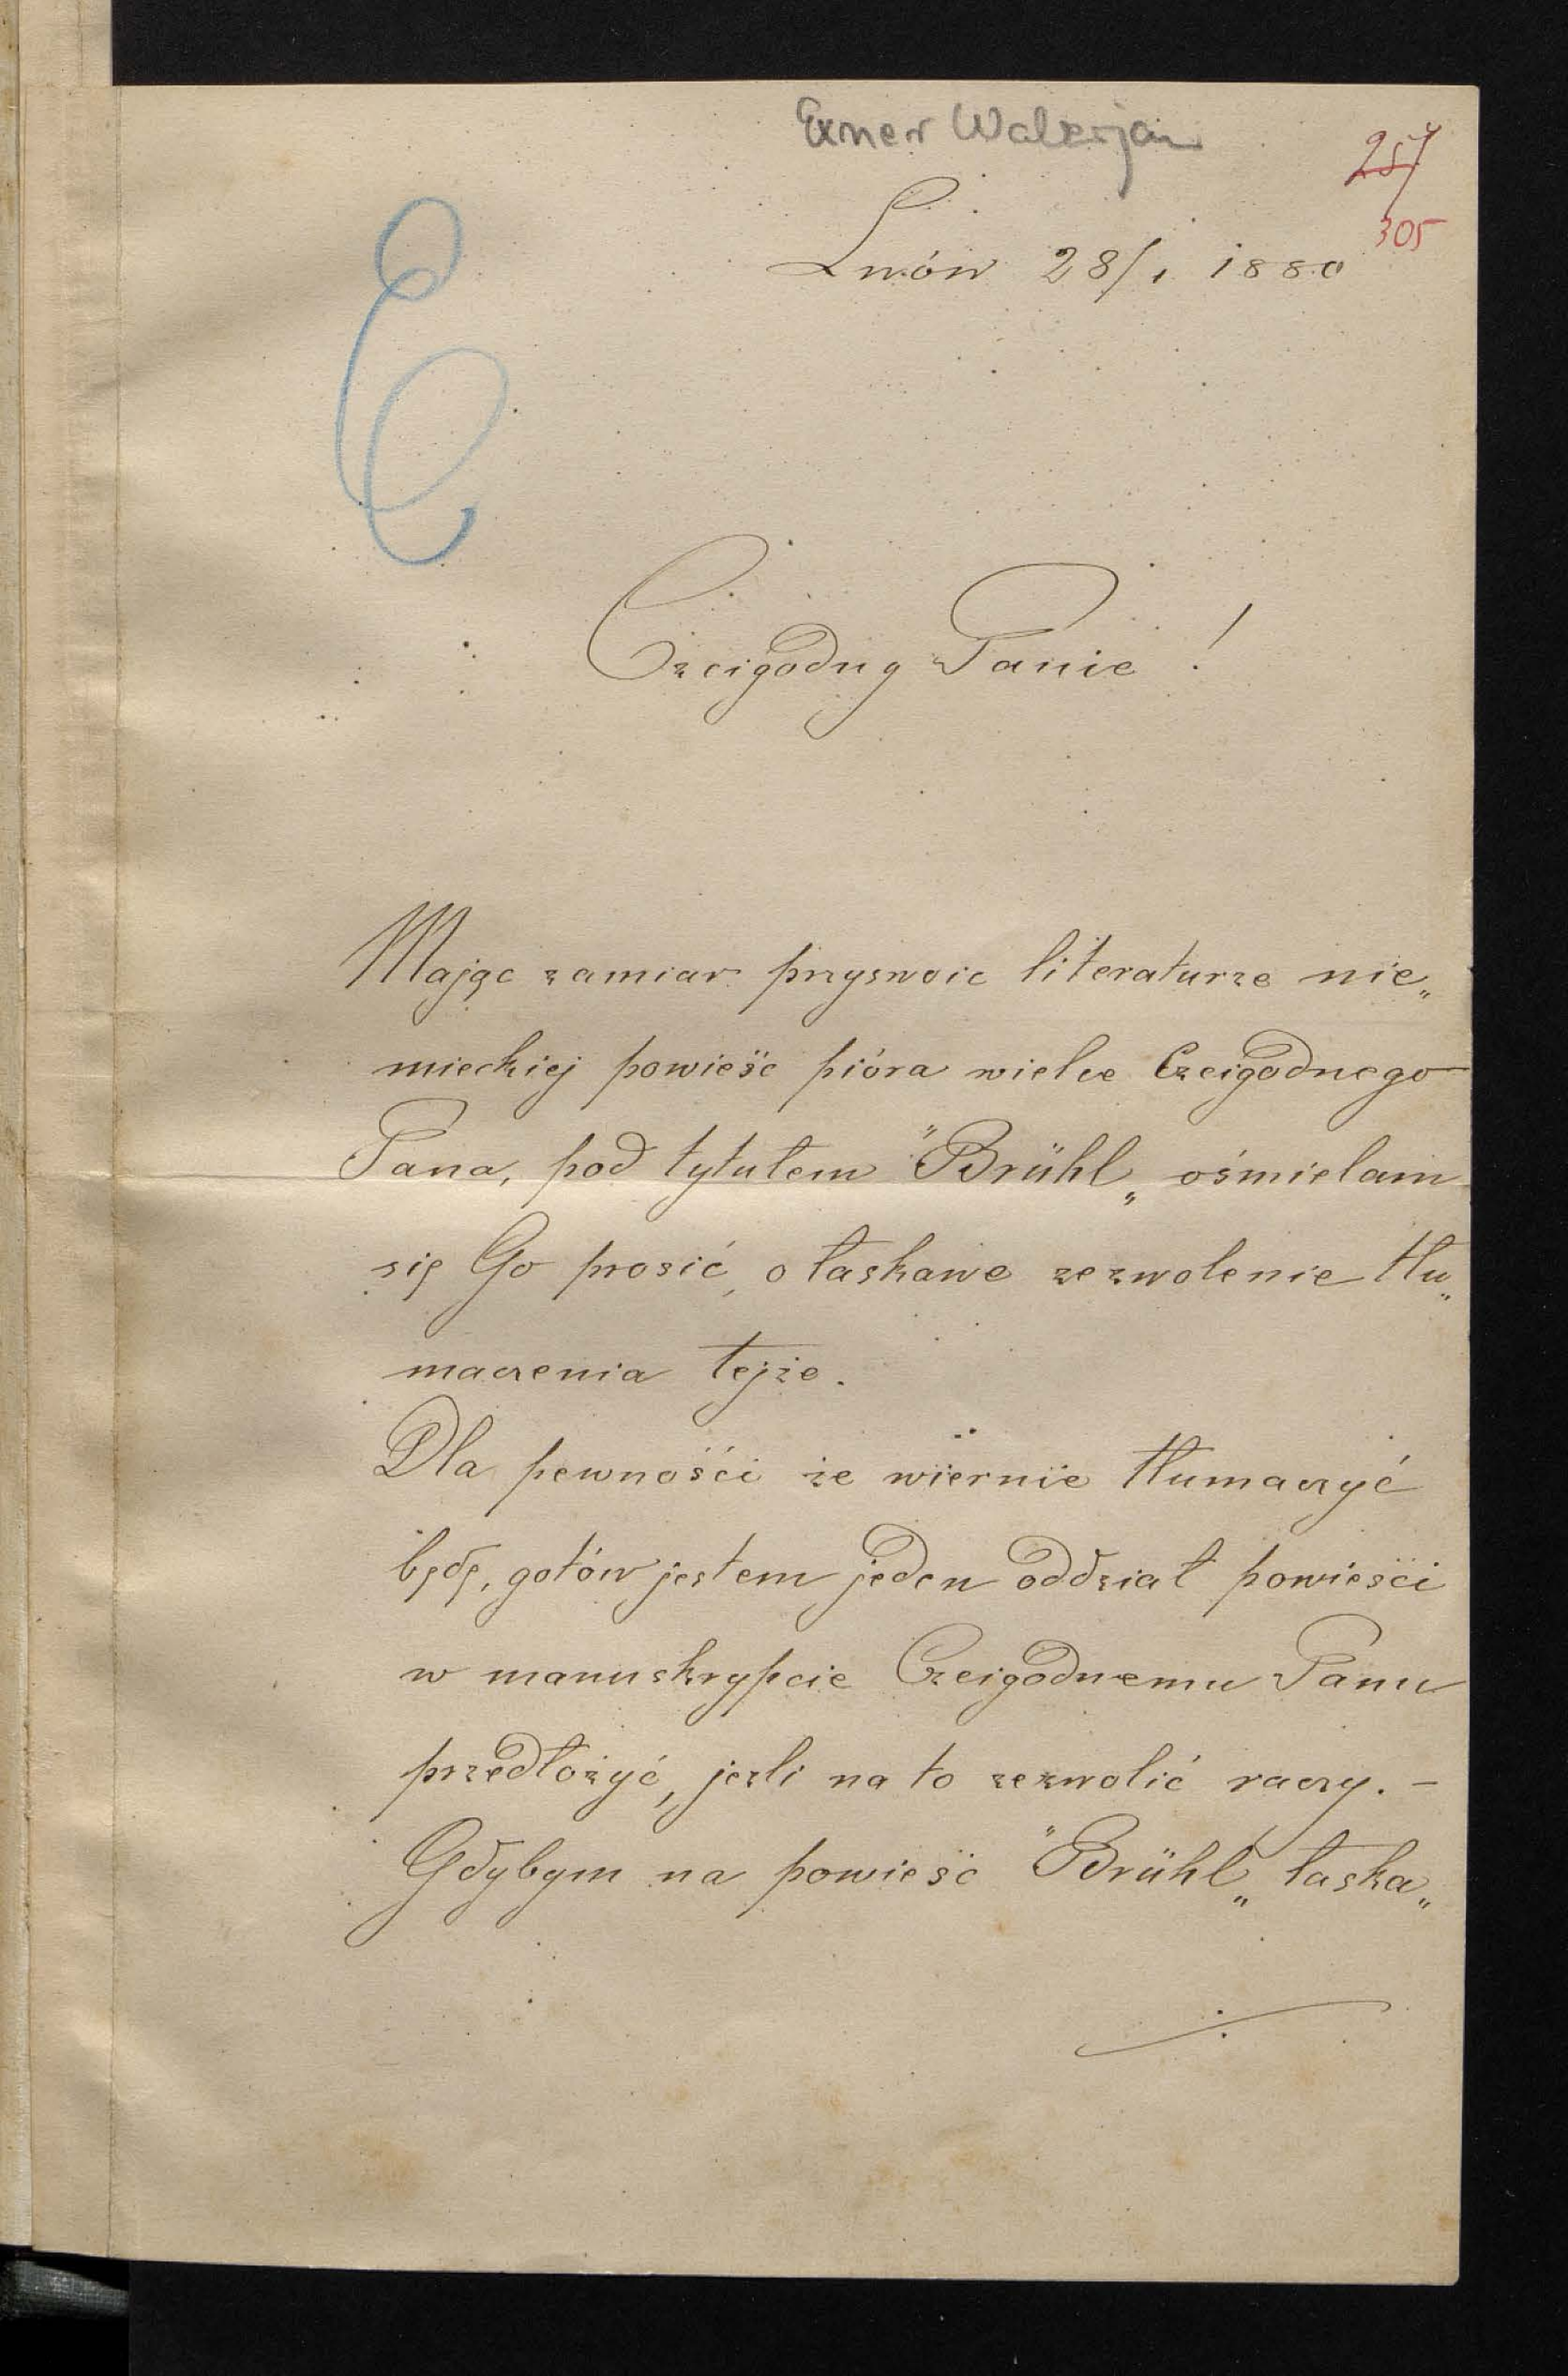 Exner Walerjan
257
305
Lwów 28/1 1880
Czcigodny Panie!
Mając zamiar przyswoic literaturze nie„
mieckiej powieśc pióra wielce Czcigodnego
Pana, pod tytułem "Brühl„ ośmielam
się Go prosić, o łaskawe zezwolenie tłu„
maczenia tejże.
Dla pewności że wiernie tłumaczyć
będę, gotów jestem jeden oddział powieści
w manuskrypcie Czcigodnemu Panu
przedłożyć, jeźli na to zezwolić raczy. –
Gdybym na powieśc "Brühl„ łaska„